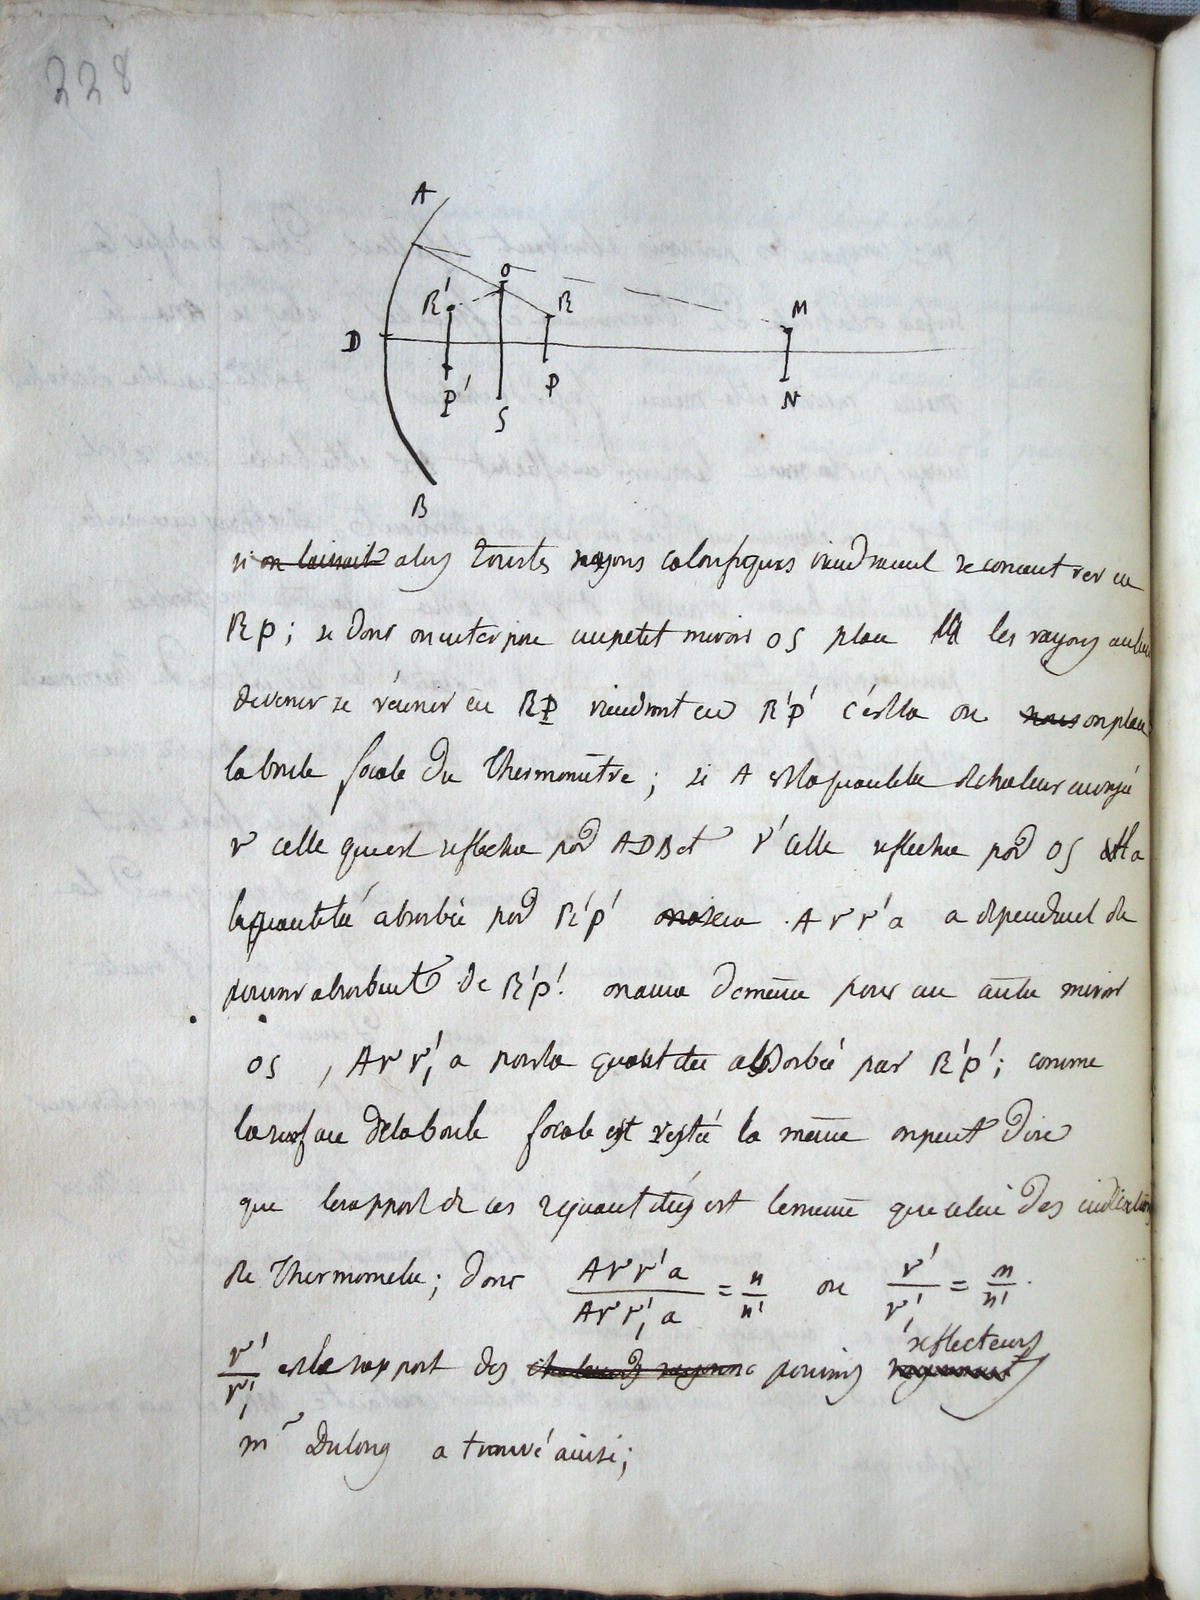 228
A
O
R' R M
D
P' P N
S
B
si on laissait alors tous les rayons calorifiques viendraient se concentrer en
RP; si donc on interpose un petit miroir OS plan les rayons au lieu
de venir se réunir en RP viendront en R'P' c'est la ou nous on place
la boule focale du Thermomètre; si A est la quantité de chaleur envoyée
r celle qui est reflechie par ADB et r' celle reflechie par OS et a
la quantité absorbée par R'P' on sera A r r' a a dependant du
pouvoir absorbant de R'P'. on aura de meme pour un autre miroir
OS , A r r'₁ a pour la quantitée absorbée par R'P'; comme
la surface de la boule focale est restée la même on peut dire
que le rapport de ces 2 quantitées est le meme que celui des indications
de Thermometre; donc A r r' a / A r r'₁ a = n/n' ou r'/r'₁ = n/n'.
reflecteurs
r'/r'₁ est le rapport des chaleurs rayonne pouvoirs rayonnants
mr Dulong a trouvé ainsi;